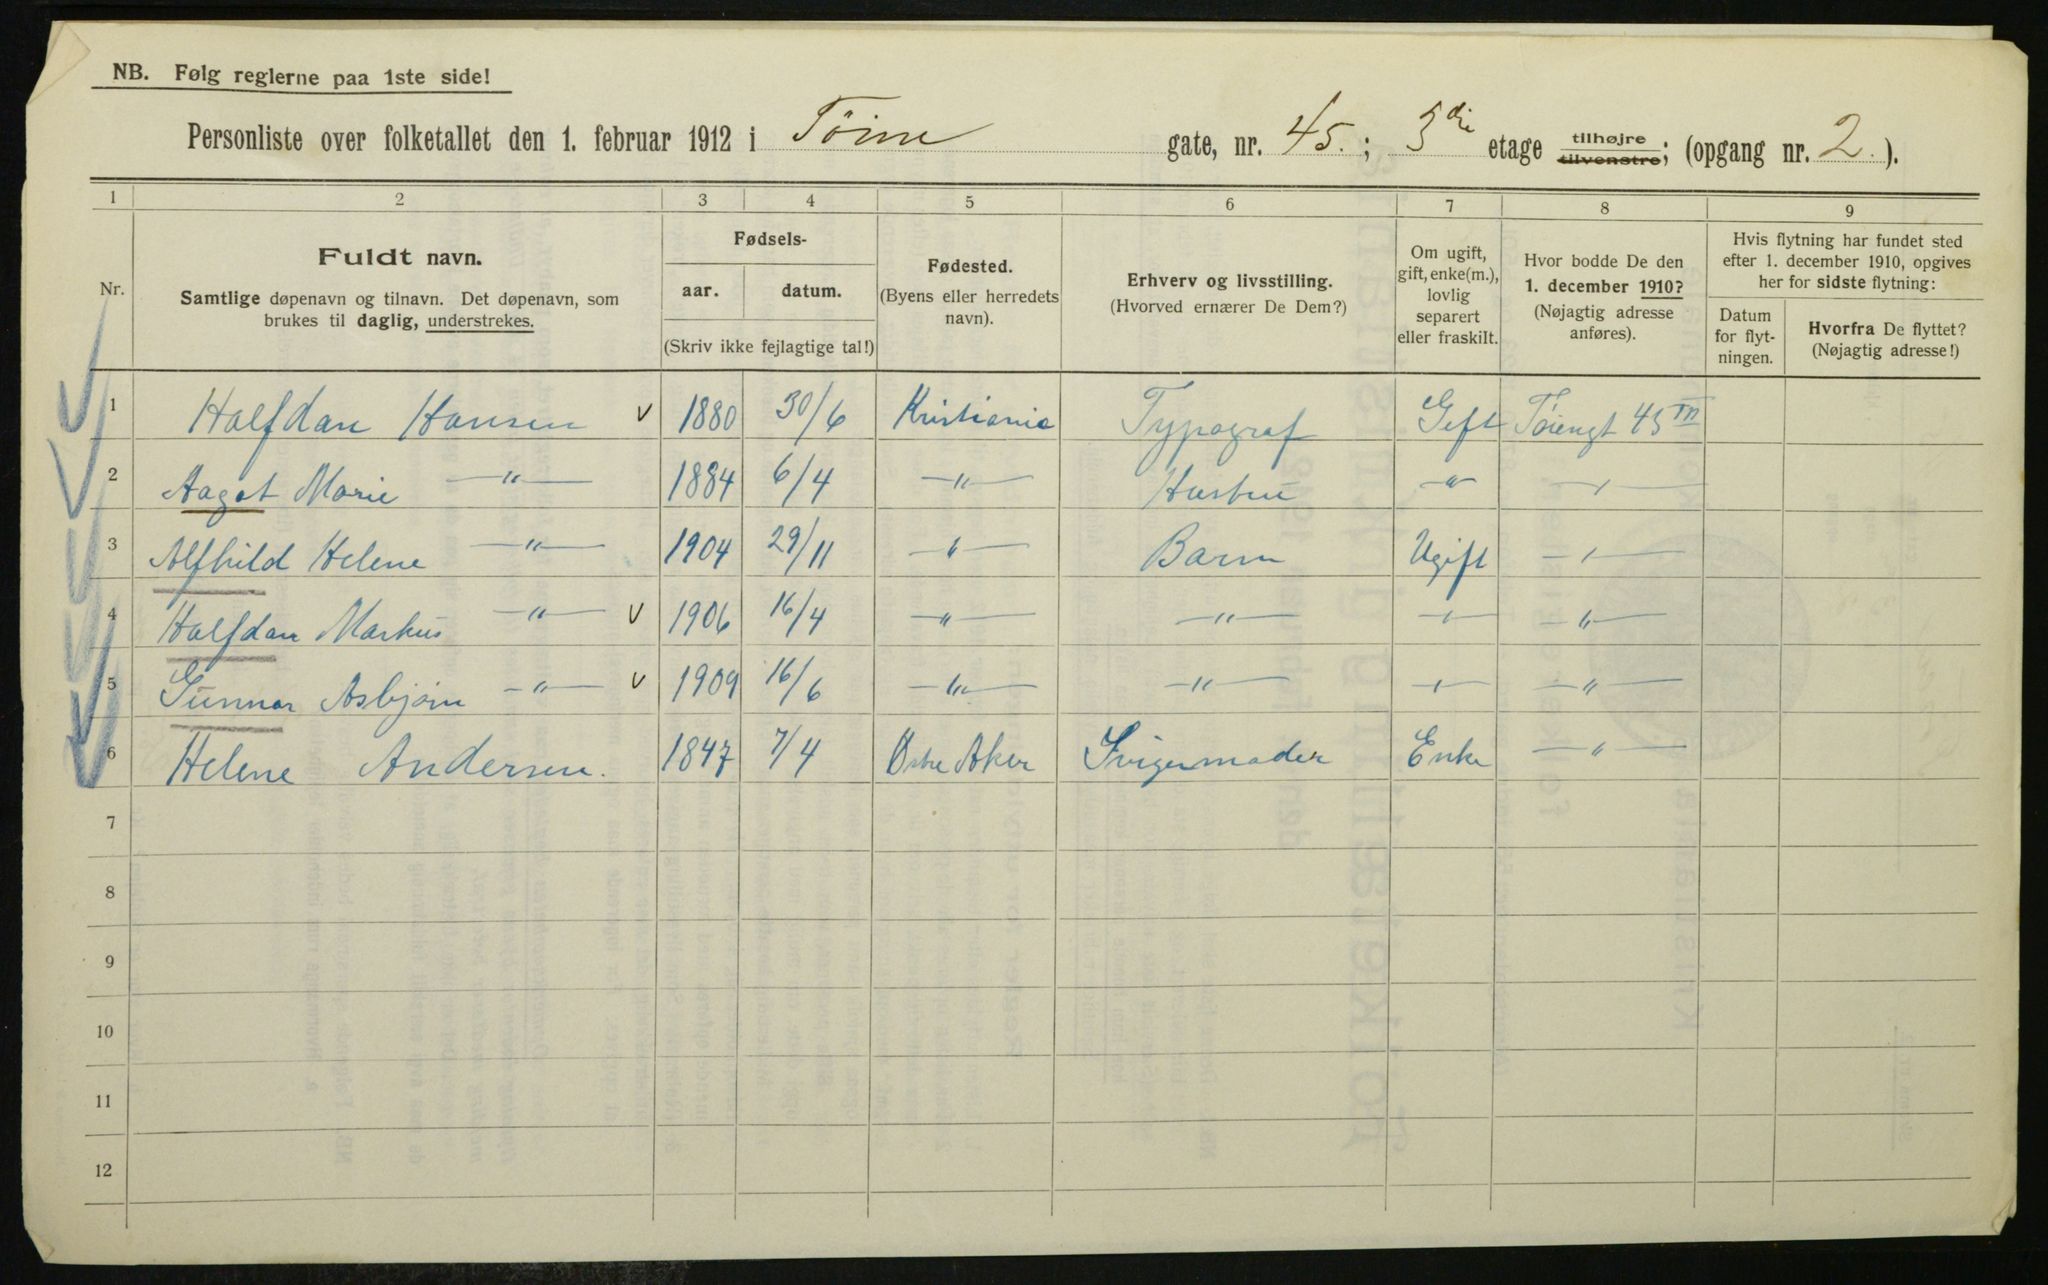 NB. Følg reglerne paa 1ste side!
Personliste over folketallet den 1. februar 1912 i Töien gate, nr. 45. ; 3die etage tilhøjre tilvenstre; (opgang nr. 2.).
1 2 3 4 5 6 7 8 9
Nr.
Fuldt navn.
Samtlige døpenavn og tilnavn. Det døpenavn, som
brukes til daglig, understrekes.
Fødsels-
aar. datum.
(Skriv ikke fejlagtige tal!)
Fødested.
(Byens eller herredets
navn).
Erhverv og livsstilling.
(Hvorved ernærer De Dem?)
Om ugift,
gift, enke(m.),
lovlig
separert
eller fraskilt.
Hvor bodde De den
1. december 1910?
(Nøjagtig adresse
anføres).
Hvis flytning har fundet sted
efter 1. december 1910, opgives
her for sidste flytning:
Datum
for flyt-
ningen.
Hvorfra De flyttet?
(Nøjagtig adresse!)
1 Halfdan Hansen v 1880 30/6 Kristiania Typograf Gift Töiengt 45 III
2 Aagot Marie —"— 1884 6/4 —"— Hustru —"— —"—
3 Alfhild Helene —"— 1904 29/11 —"— Barn Ugift —"—
4 Halfdan Markus —"— v 1906 16/4 —"— —"— —"— —"—
5 Gunnar Asbjørn —"— v 1909 16/6 —"— —"— —"— —"—
6 Helene Andersen. 1847 7/4 Østre Aker Svigermoder Enke —"—
7
8
9
10
11
12